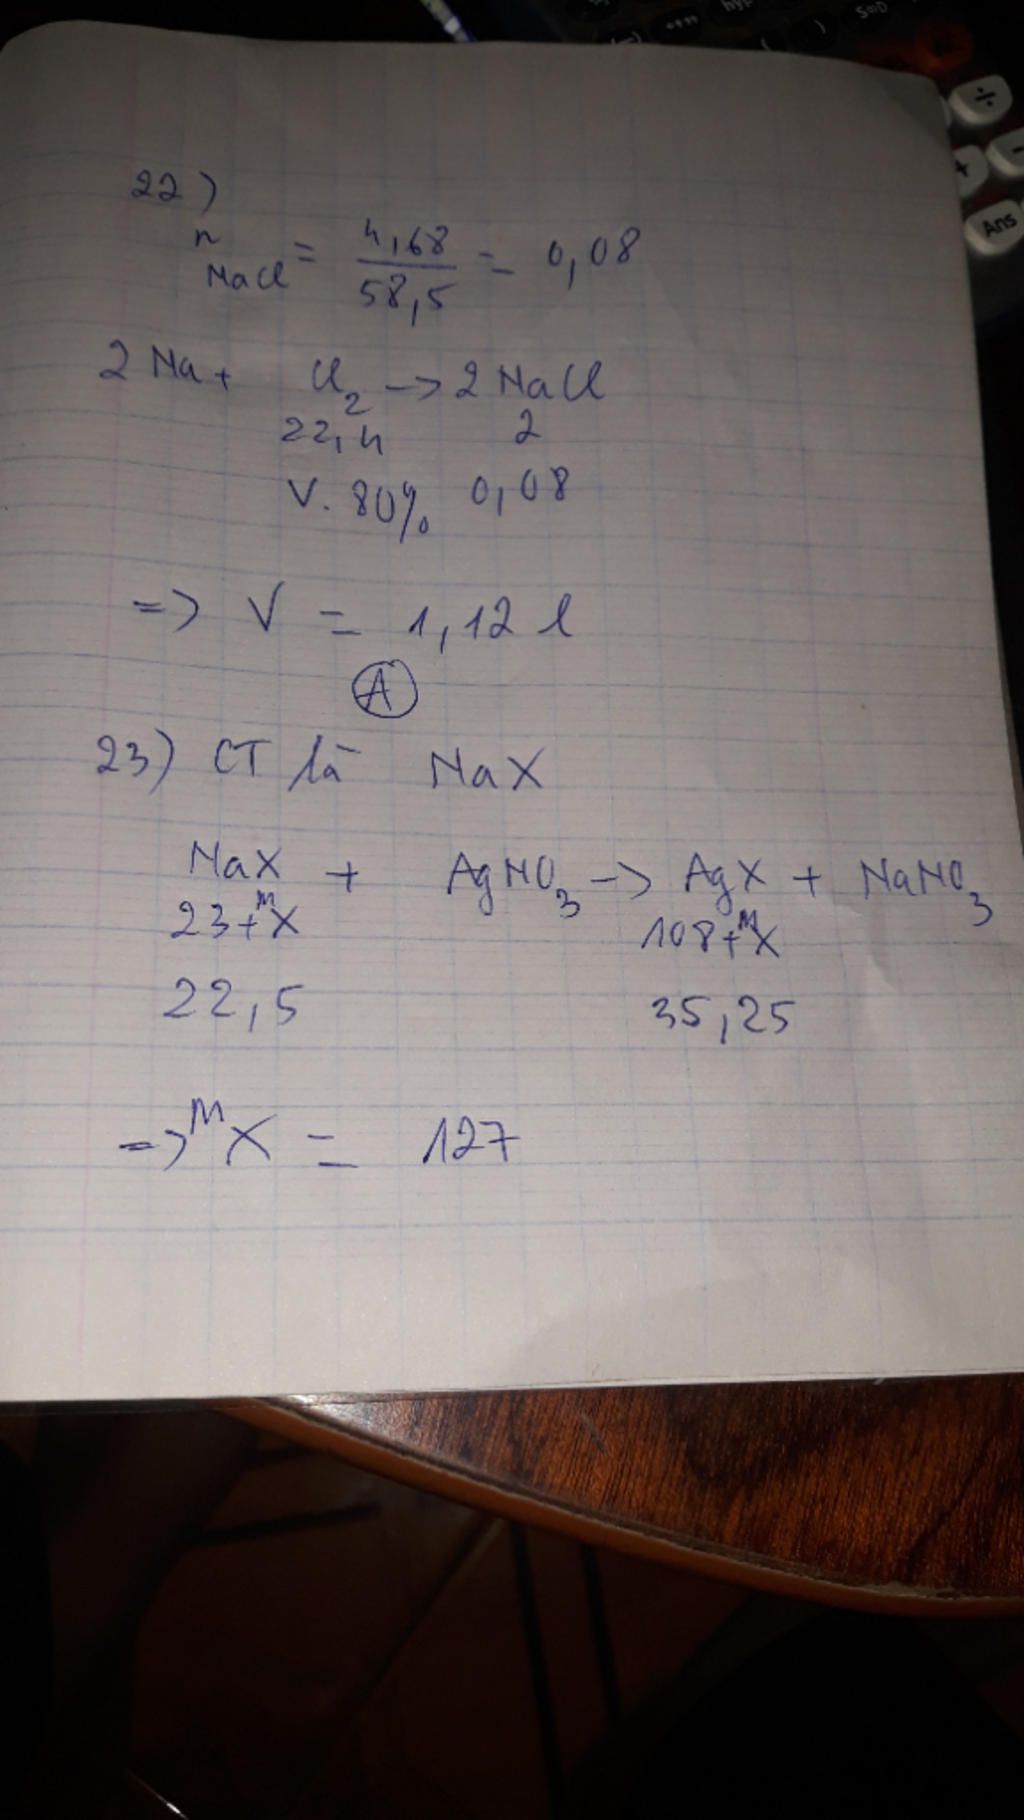 hyp
S⇔D
(—)
)
(
÷
+
−
Ans
22)
n NaCl = 4,68 / 58,5 = 0,08
2 Na + Cl2 -> 2 NaCl
22,4 2
V. 80% 0,08
=> V = 1,12 l
A
23) CT là NaX
NaX + AgNO3 -> AgX + NaNO3
23+MX 108+MX
22,5 35,25
=> MX = 127